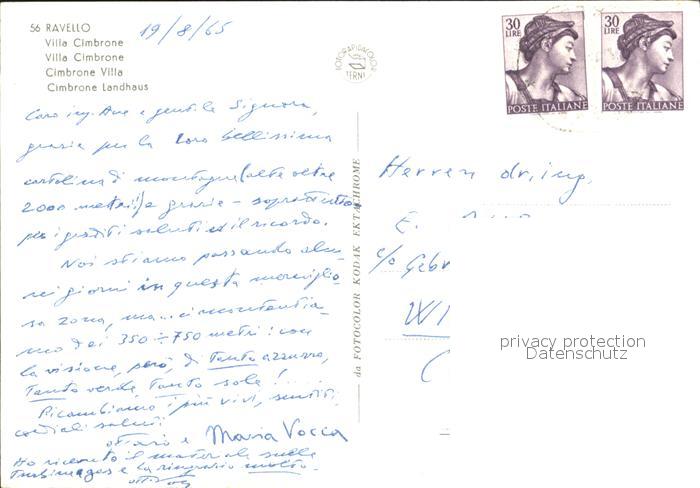 56 RAVELLO
Villa Cimbrone
Villa Cimbrone
Cimbrone Villa
Cimbrone Landhaus
19/8/65
30 LIRE
POSTE ITALIANE
30 LIRE
POSTE ITALIANE
FOTORAPIDACOLOR
TERNI
da FOTOCOLOR KODAK EKTACHROME
Caro ing. e gentile Signora,
grazie per la loro bellissima
cartolina di montagne (alte oltre
2000 metri!) e grazie - soprattutto
per i graditi saluti ed il ricordo.
Noi stiamo passando alcu-
ni giorni in questa meraviglio-
sa zona, ma... ci accontentia-
mo dei 350 ÷ 750 metri: con
la visione, però, di Tanto azzurro,
Tanto verde, Tanto sole!...
Ricambiamo i più vivi, sentiti,
cordiali saluti
e Maria Vocca
Ho ricevuto il materiale sulle
e La ringrazio molto.
Herren dr. ing.
E.
c/o Gebr
WI
privacy protection
Datenschutz